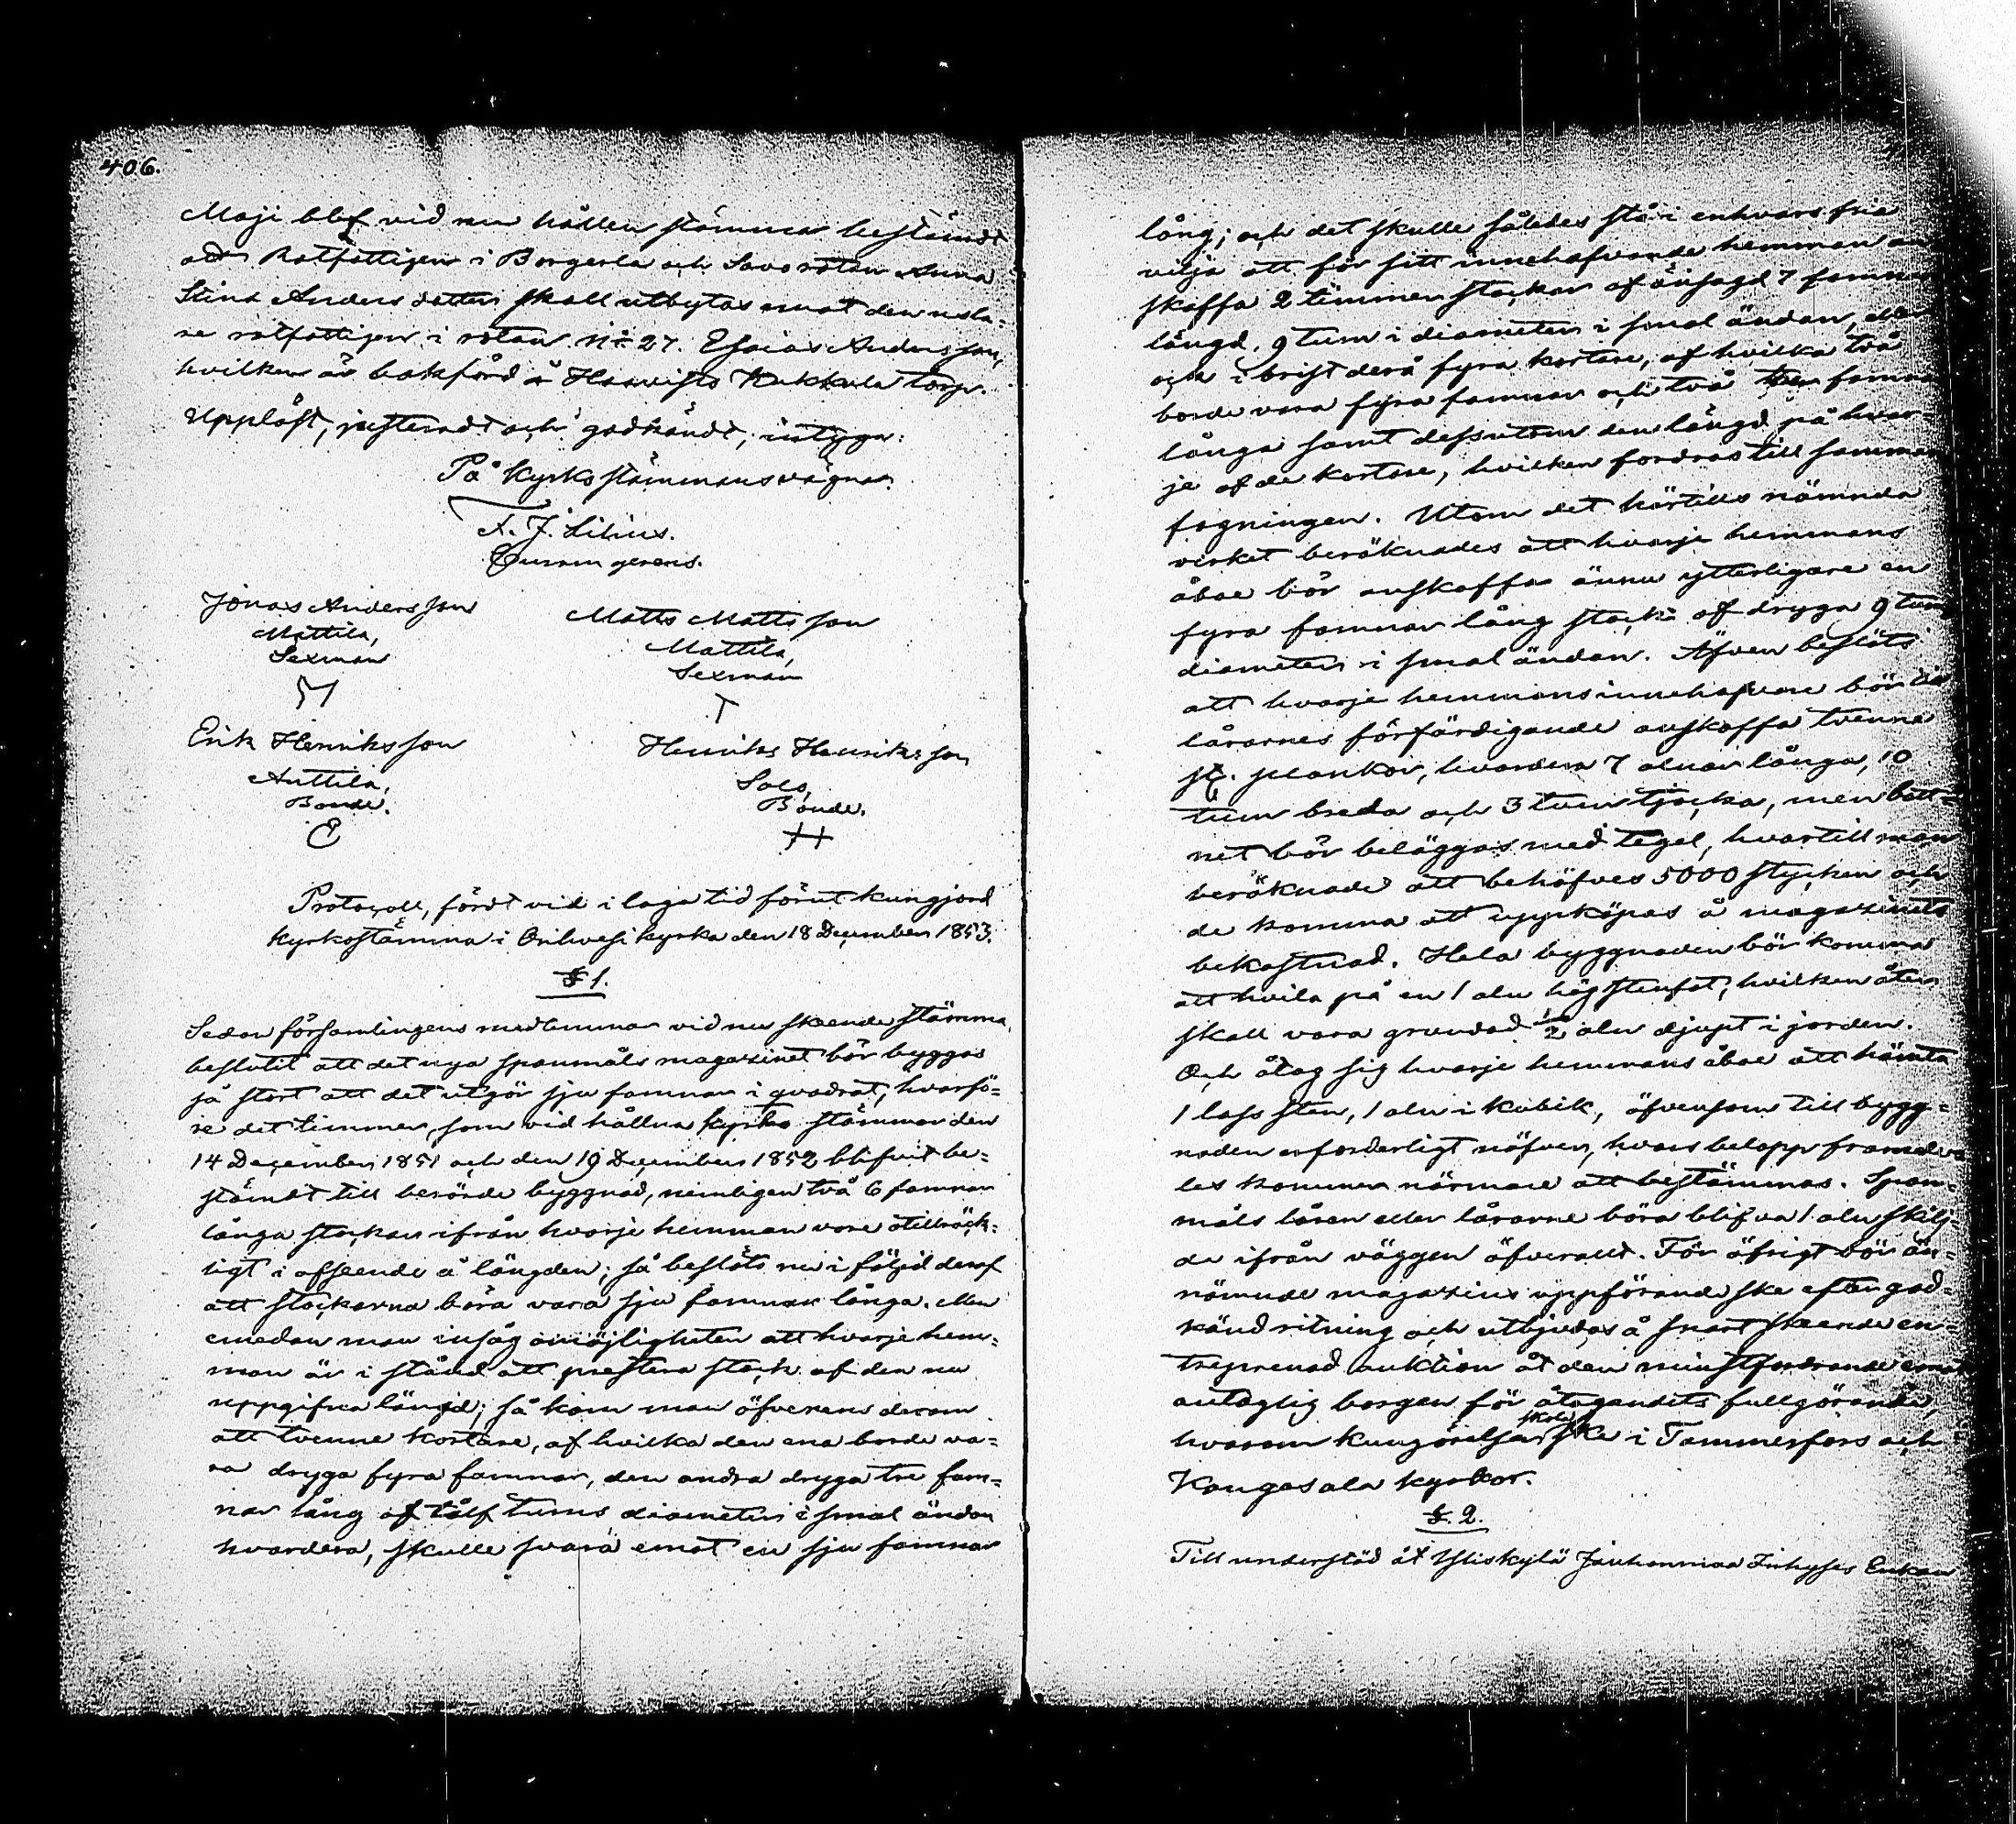 406.
Maji blef vid nu hållen stämma bestämdt
att Rotfattigen i Borgerla och Savo rotan Anna
Stina Anders dotter skall utbytas emot den nuva-
re rotfattigen i rotan N:o 27. Esaias Andersson,
hvilken är bokförd å Haavisto Kukkula torp.
Uppläst, justeradt och godkändt, intyga:
På Kyrkostämmans vägnar.
A. J. Lilius.
Curam gerens.
Jonas Andersson
Mattila,
Sexman
Matts Mattsson
Mattila,
Sexman
Erik Henriksson
Anttila,
Bonde.
E
Henriks Henriksson
Salo,
Bonde.
H
Protocoll, fördt vid i laga tid förut kungjord
Kyrkostämma i Orihvesi kyrka den 18 December 1853.
§ 1.
Sedan församlingens medlemmar vid nu skeende stämma
beslutit att det nya spanmåls magazinet bör byggas
så stort att det utgör sju famnar i qvadrat, hvarfö-
re det timmer, som vid hållna kyrko stämmor den
14 December 1851 och den 19 December 1852 blifvit be-
stämdt till berörde byggnad, nemligen två 6 famnar
långa stockar ifrån hvarje hemman vore otillräck-
ligt i afseende å längden; så beslöts nu i följd deraf
att stockarna böra vara sju famnar långa. Men
emedan man insåg omöjligheten att hvarje hem-
man är i stånd att prestera stock af den nu
uppgifna längd; så kom man öfverens derom
att tvenne kortare, af hvilka den ena borde va-
ra dryga fyra famnar, den andra dryga tre fam-
nar lång af tolf tums diameter i smal ändan
hvardera, skulle svara emot en sju famnar
lång; och det skulle således stå i enhvars fria
vilja att för sitt innehafvande hemman an
skaffa 2 timmer stockar af ofvansagd 7 famnar
längd, 9 tum i diameter i smal ändan, eller
och i brist derå fyra kortare, af hvilka två
borde vara fyra famnar och två tre famnar
långa samt dessutom den längd på hvar-
je af de kortare, hvilken fordras till samman
fogningen. Utom det härtills nämnda
virket beräknades att hvarje hemmans
åboe bör anskaffa ännu ytterligare en
fyra famnar lång stock af dryga 9 tums
diameter i smal ändan. Äfven beslöts
att hvarje hemmansinnehafvare bör till
lårarnes förfärdigande anskaffa tvenne
st. plankor, hvardera 7 alnar långa, 10
tum breda och 3 tum tjocka, men bott-
net bör beläggas med tegel, hvartill man
beräknade att behöfves 5000 stycken och
de komma att uppköpas å magazinets
bekostnad. Hela byggnaden bör komma
att hvila på en 1 aln hög stenfot, hvilken åter
skall vara grundad 1/2 aln djupt i jorden.
Och åtog sig hvarje hemmans åboe att hämta
1 lass sten, 1 aln i kubik, äfvensom till bygg-
naden erforderligt näfver, hvars belopp framde-
les kommer närmare att bestämmas. Span-
måls låren eller lårarne böra blifva 1 aln skilj-
de ifrån väggen öfverallt. För öfrigt bör än-
nämnde magazins uppförande ske efter god-
känd ritning och utbjudas å snart skeende en-
treprenad auktion åt den minstfordrande emot
antaglig borgen för åtagandets fullgörande,
hvarom kungörelse skola ske i Tammerfors och
Kangasala kyrkor.
§. 2.
Till understöd åt Yliskylä Jauhonmaa Inhyses Enkan